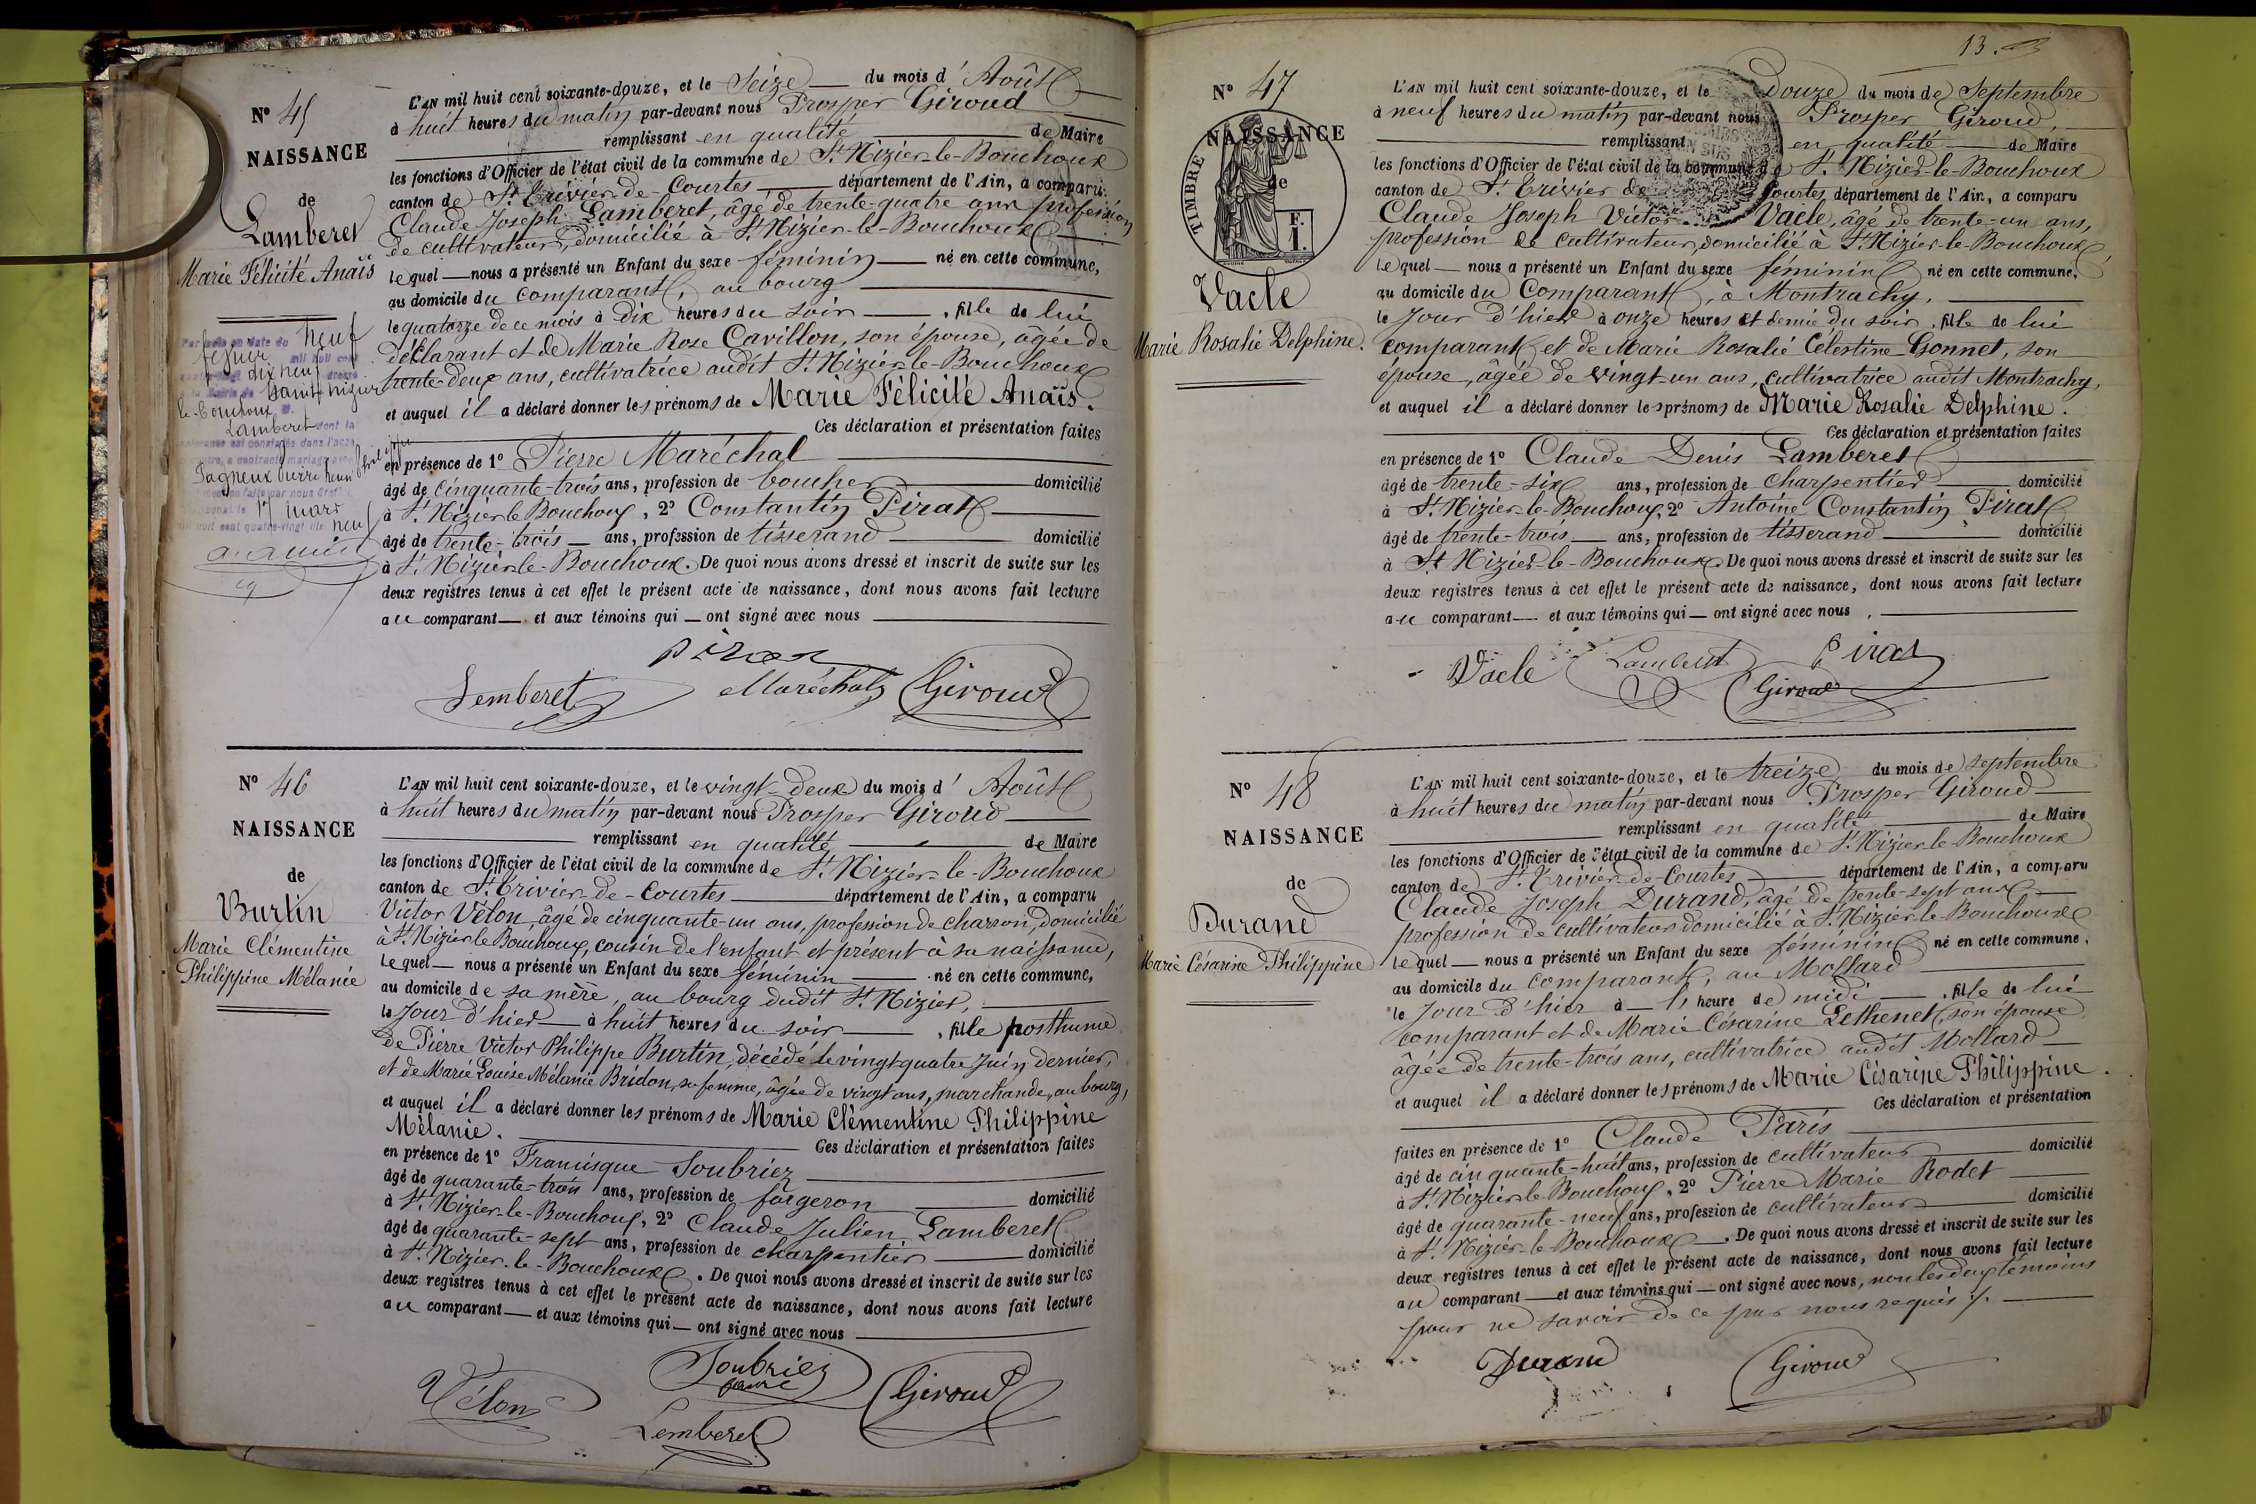 Nº 45
NAISSANCE
de
Lamberet
Marie Félicité Anaïs
neuf
février
dix neuf
Saint-Nizier
le-Bouchoux
Lamberet
Pagneux Pierre Henri Philippe
17 mars
neuf
L'AN mil huit cent soixante-douze, et le Seize du mois d'Août
à huit heures du matin par-devant nous Prosper Giroud
remplissant en qualité de Maire
les fonctions d'Officier de l'état civil de la commune de St Nizier-le-Bouchoux
canton de St Trivier-de-Courtes département de l'Ain, a comparu
Claude Joseph Lamberet, âgé de trente-quatre ans profession
de cultivateur, domicilié à St Nizier-le-Bouchoux
lequel nous a présenté un Enfant du sexe féminin né en cette commune,
au domicile du comparant, au bourg
le quatorze de ce mois à Dix heures du soir, fille de lui
déclarant et de Marie Rose Cavillon, son épouse, âgée de
trente-deux ans, cultivatrice audit St Nizier-le-Bouchoux
et auquel il a déclaré donner les prénoms de Marie Félicité Anaïs.
Ces déclaration et présentation faites
en présence de 1º Pierre Maréchal
âgé de cinquante-trois ans, profession de boucher domicilié
à St Nizier le Bouchoux, 2º Constantin Pirat
âgé de trente-trois ans, profession de tisserand domicilié
à St Nizier-le-Bouchoux. De quoi nous avons dressé et inscrit de suite sur les
deux registres tenus à cet effet le présent acte de naissance, dont nous avons fait lecture
au comparant et aux témoins qui ont signé avec nous
Pirat
Lemberet Maréchal Giroud
Nº 46
NAISSANCE
de
Burtin
Marie Clémentine
Philippine Mélanie
L'AN mil huit cent soixante-douze, et le vingt-deux du mois d'Août
à huit heures du matin par-devant nous Prosper Giroud
remplissant en qualité de Maire
les fonctions d'Officier de l'état civil de la commune de St Nizier-le-Bouchoux
canton de St Trivier-de-Courtes département de l'Ain, a comparu
Victor Vélon, âgé de cinquante-un ans, profession de charron, domicilié
à St Nizier le Bouchoux, cousin de l'enfant et présent à sa naissance,
lequel nous a présenté un Enfant du sexe féminin né en cette commune,
au domicile de sa mère, au bourg dudit St Nizier,
le Jour d'hier à huit heures du soir, fille posthume
de Pierre Victor Philippe Burtin, décédé le vingt-quatre Juin dernier,
et de Marie Louise Mélanie Bridon, sa femme, âgée de vingt ans, marchande, au bourg,
et auquel il a déclaré donner les prénoms de Marie Clémentine Philippine
Mélanie.
Ces déclaration et présentation faites
en présence de 1º Francisque Soubriez
âgé de quarante-trois ans, profession de forgeron domicilié
à St Nizier-le-Bouchoux, 2º Claude Julien Lamberet
âgé de quarante-sept ans, profession de charpentier domicilié
à St Nizier-le-Bouchoux. De quoi nous avons dressé et inscrit de suite sur les
deux registres tenus à cet effet le présent acte de naissance, dont nous avons fait lecture
au comparant et aux témoins qui ont signé avec nous
Vélon Soubriez Giroud
Lemberet
13.
Nº 47
NAISSANCE
de
TIMBRE
F.
1.
Vacle
Marie Rosalie Delphine.
L'AN mil huit cent soixante-douze, et le Douze du mois de Septembre
à neuf heures du matin par-devant nous Prosper Giroud,
remplissant en qualité de Maire
les fonctions d'Officier de l'état civil de la commune de St Nizier-le-Bouchoux
canton de St Trivier de Courtes département de l'Ain, a comparu
Claude Joseph Victor Vacle, âgé de trente-un ans,
profession de cultivateur, domicilié à St Nizier-le-Bouchoux,
lequel nous a présenté un Enfant du sexe féminin né en cette commune,
au domicile du Comparant, à Montrachy,
le Jour d'hier à onze heures et demie du soir, fille de lui
comparant et de Marie Rosalie Célestine Gonnet, son
épouse, âgée de vingt-un ans, cultivatrice audit Montrachy,
et auquel il a déclaré donner les prénoms de Marie Rosalie Delphine.
Ces déclaration et présentation faites
en présence de 1º Claude Denis Lamberet
âgé de trente-six ans, profession de charpentier domicilié
à St Nizier-le-Bouchoux, 2º Antoine Constantin Pirat
âgé de trente-trois ans, profession de tisserand domicilié
à St Nizier-le-Bouchoux. De quoi nous avons dressé et inscrit de suite sur les
deux registres tenus à cet effet le présent acte de naissance, dont nous avons fait lecture
au comparant et aux témoins qui ont signé avec nous.
Vacle Lamberet Pirat
Giroud
Nº 48
NAISSANCE
de
Durand
Marie Césarine Philippine
L'AN mil huit cent soixante-douze, et le treize du mois de septembre
à huit heures du matin par-devant nous Prosper Giroud
remplissant en qualité de Maire
les fonctions d'Officier de l'état civil de la commune de St Nizier le Bouchoux
canton de St Trivier-de-Courtes département de l'Ain, a comparu
Claude Joseph Durand, âgé de trente-sept ans,
profession de cultivateur domicilié à St Nizier-le-Bouchoux
lequel nous a présenté un Enfant du sexe féminin né en cette commune,
au domicile du comparant, au Mollard
le Jour d'hier à l'heure de midi, fille de lui
comparant et de Marie Césarine Lethenet, son épouse
âgée de trente-trois ans, cultivatrice audit Mollard
et auquel il a déclaré donner les prénoms de Marie Césarine Philippine.
Ces déclaration et présentation
faites en présence de 1º Claude Paris
âgé de cinquante-huit ans, profession de cultivateur domicilié
à St Nizier-le Bouchoux, 2º Pierre Marie Rodet
âgé de quarante-neuf ans, profession de cultivateur domicilié
à St Nizier-le Bouchoux. De quoi nous avons dressé et inscrit de suite sur les
deux registres tenus à cet effet le présent acte de naissance, dont nous avons fait lecture
au comparant et aux témoins qui ont signé avec nous, non les deux témoins
pour ne savoir de ce par nous requis
Durand Giroud